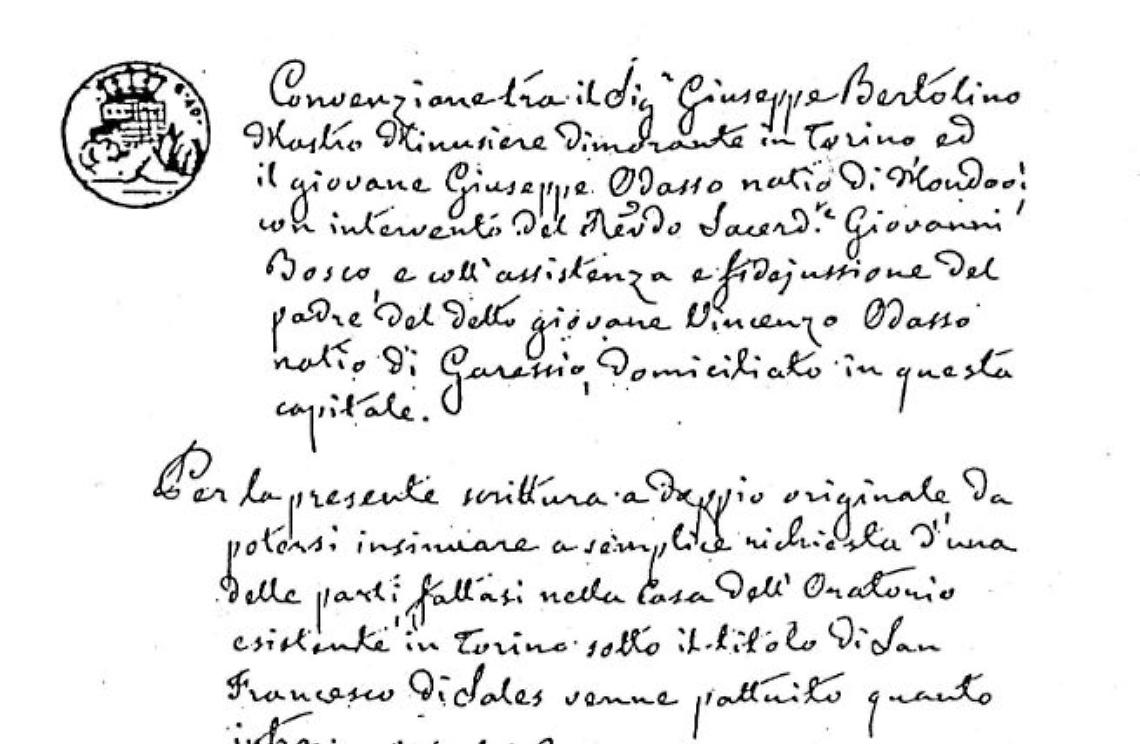 6·40·
Convenzione tra il Sigr Giuseppe Bertolino
Mastro Minusiere dimorante in Torino ed
il giovane Giuseppe Odasso natio di Mondovì
con intervento del Revdo Sacerd.te Giovanni
Bosco, e coll'assistenza e fidejussione del
padre del detto giovane Vincenzo Odasso
natio di Garessio, domiciliato in questa
capitale.
Per la presente scrittura a doppio originale da
potersi insinuare a semplice richiesta d'una
delle parti, fattasi nella Casa dell'Oratorio
esistente in Torino sotto il titolo di San
Francesco di Sales venne pattuito quanto